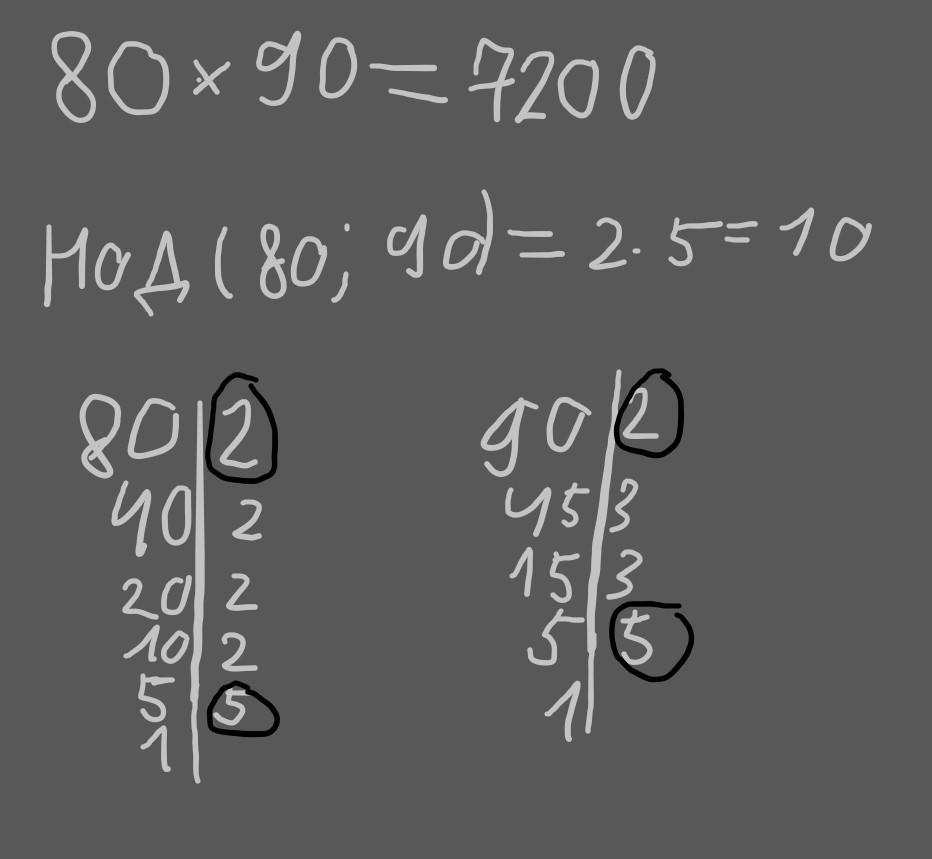 80 × 90 = 7200
НОД (80; 90) = 2 · 5 = 10
80 | 2
40 | 2
20 | 2
10 | 2
5 | 5
1 |
90 | 2
45 | 3
15 | 3
5 | 5
1 |